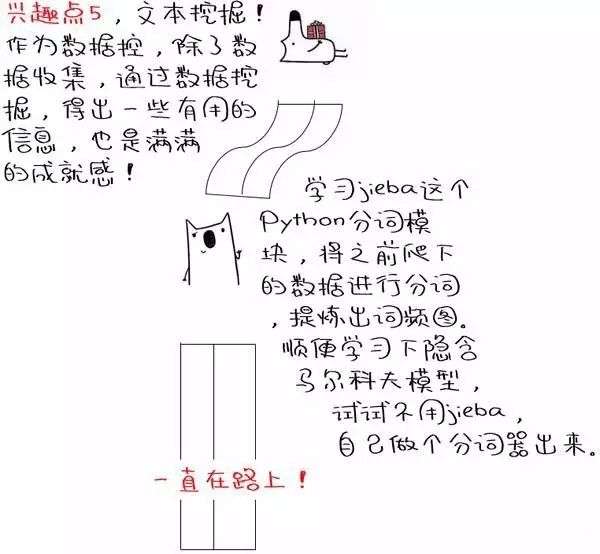 兴趣点5,文本挖掘!
作为数据控,除了数
据收集,通过数据挖
掘,得出一些有用的
信息,也是满满
的成就感!
学习jieba这个
Python分词模
块,将之前爬下
的数据进行分词
,提炼出词频图。
顺便学习下隐含
马尔科夫模型,
试试不用jieba,
自己做个分词器出来。
一直在路上!